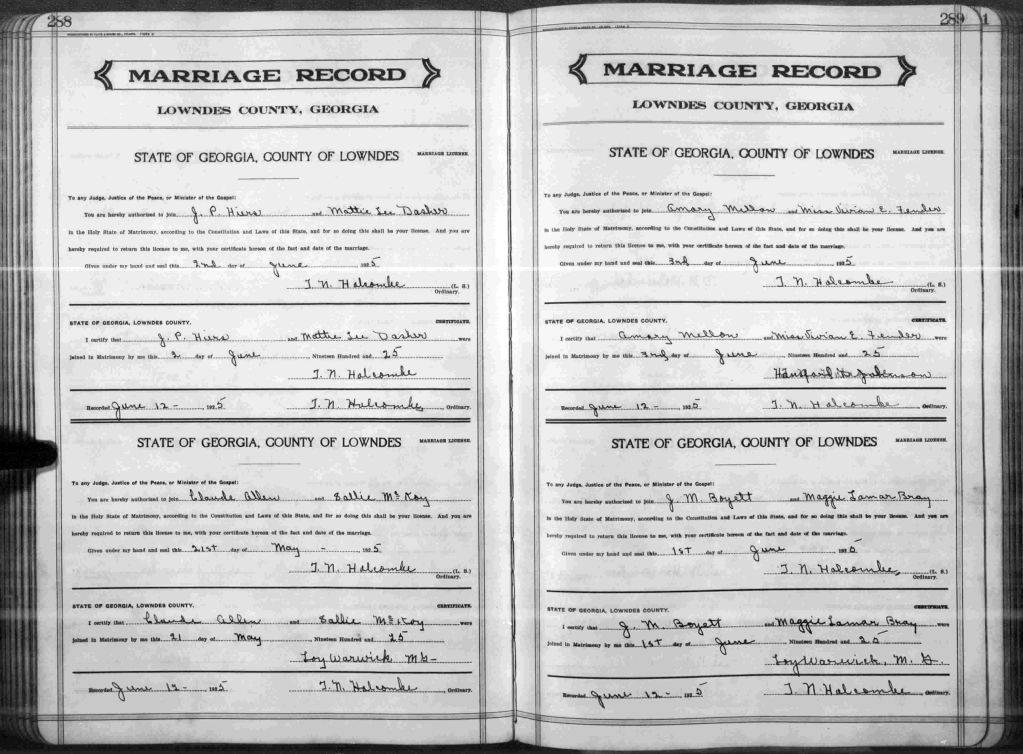 288
MARRIAGE RECORD
LOWNDES COUNTY, GEORGIA
STATE OF GEORGIA, COUNTY OF LOWNDES MARRIAGE LICENSE.
To any Judge, Justice of the Peace, or Minister of the Gospel:
You are hereby authorized to join J. P. Hiers and Mattie Lee Dasher
in the Holy State of Matrimony, according to the Constitution and Laws of this State, and for so doing this shall be your license. And you are
hereby required to return this license to me, with your certificate hereon of the fact and date of the marriage.
Given under my hand and seal this 2nd day of June 1925
T. N. Holcombe (L. S.)
Ordinary.
STATE OF GEORGIA, LOWNDES COUNTY. CERTIFICATE.
I certify that J. P. Hiers and Mattie Lee Dasher were
joined in Matrimony by me this 2 day of June Nineteen Hundred and 25
T. N. Holcombe
Recorded June 12 - 1925 T. N. Holcombe, Ordinary.
STATE OF GEORGIA, COUNTY OF LOWNDES MARRIAGE LICENSE.
To any Judge, Justice of the Peace, or Minister of the Gospel:
You are hereby authorized to join Claude Allen and Sallie McKoy
in the Holy State of Matrimony, according to the Constitution and Laws of this State, and for so doing this shall be your license. And you are
hereby required to return this license to me, with your certificate hereon of the fact and date of the marriage.
Given under my hand and seal this 21st day of May - 1925
T. N. Holcombe (L. S.)
Ordinary.
STATE OF GEORGIA, LOWNDES COUNTY. CERTIFICATE.
I certify that Claude Allen and Sallie McKoy were
joined in Matrimony by me this 21 day of May, Nineteen Hundred and 25
Loy Warwick M G -
Recorded June 12 - 1925 T. N. Holcombe Ordinary.
289 1
MARRIAGE RECORD
LOWNDES COUNTY, GEORGIA
STATE OF GEORGIA, COUNTY OF LOWNDES MARRIAGE LICENSE.
To any Judge, Justice of the Peace, or Minister of the Gospel:
You are hereby authorized to join Amory Mellon and Miss Vivian E. Fender
in the Holy State of Matrimony, according to the Constitution and Laws of this State, and for so doing this shall be your license. And you are
hereby required to return this license to me, with your certificate hereon of the fact and date of the marriage.
Given under my hand and seal this 3rd day of June 1925
T. N. Holcombe (L. S.)
Ordinary.
STATE OF GEORGIA, LOWNDES COUNTY. CERTIFICATE.
I certify that Amory Mellon and Miss Vivian E. Fender were
joined in Matrimony by me this 3rd day of June Nineteen Hundred and 25
Johnson
Recorded June 12 - 1925 T. N. Holcombe Ordinary.
STATE OF GEORGIA, COUNTY OF LOWNDES MARRIAGE LICENSE.
To any Judge, Justice of the Peace, or Minister of the Gospel:
You are hereby authorized to join J. M. Boyett and Maggie Lamar Bray
in the Holy State of Matrimony, according to the Constitution and Laws of this State, and for so doing this shall be your license. And you are
hereby required to return this license to me, with your certificate hereon of the fact and date of the marriage.
Given under my hand and seal this 1st day of June 1925
T. N. Holcombe, (L. S.)
Ordinary.
STATE OF GEORGIA, LOWNDES COUNTY. CERTIFICATE.
I certify that J. M. Boyett and Maggie Lamar Bray were
joined in Matrimony by me this 1st day of June Nineteen Hundred and 25
Loy Warwick, M. G.
Recorded June 12 - 1925 T. N. Holcombe Ordinary.